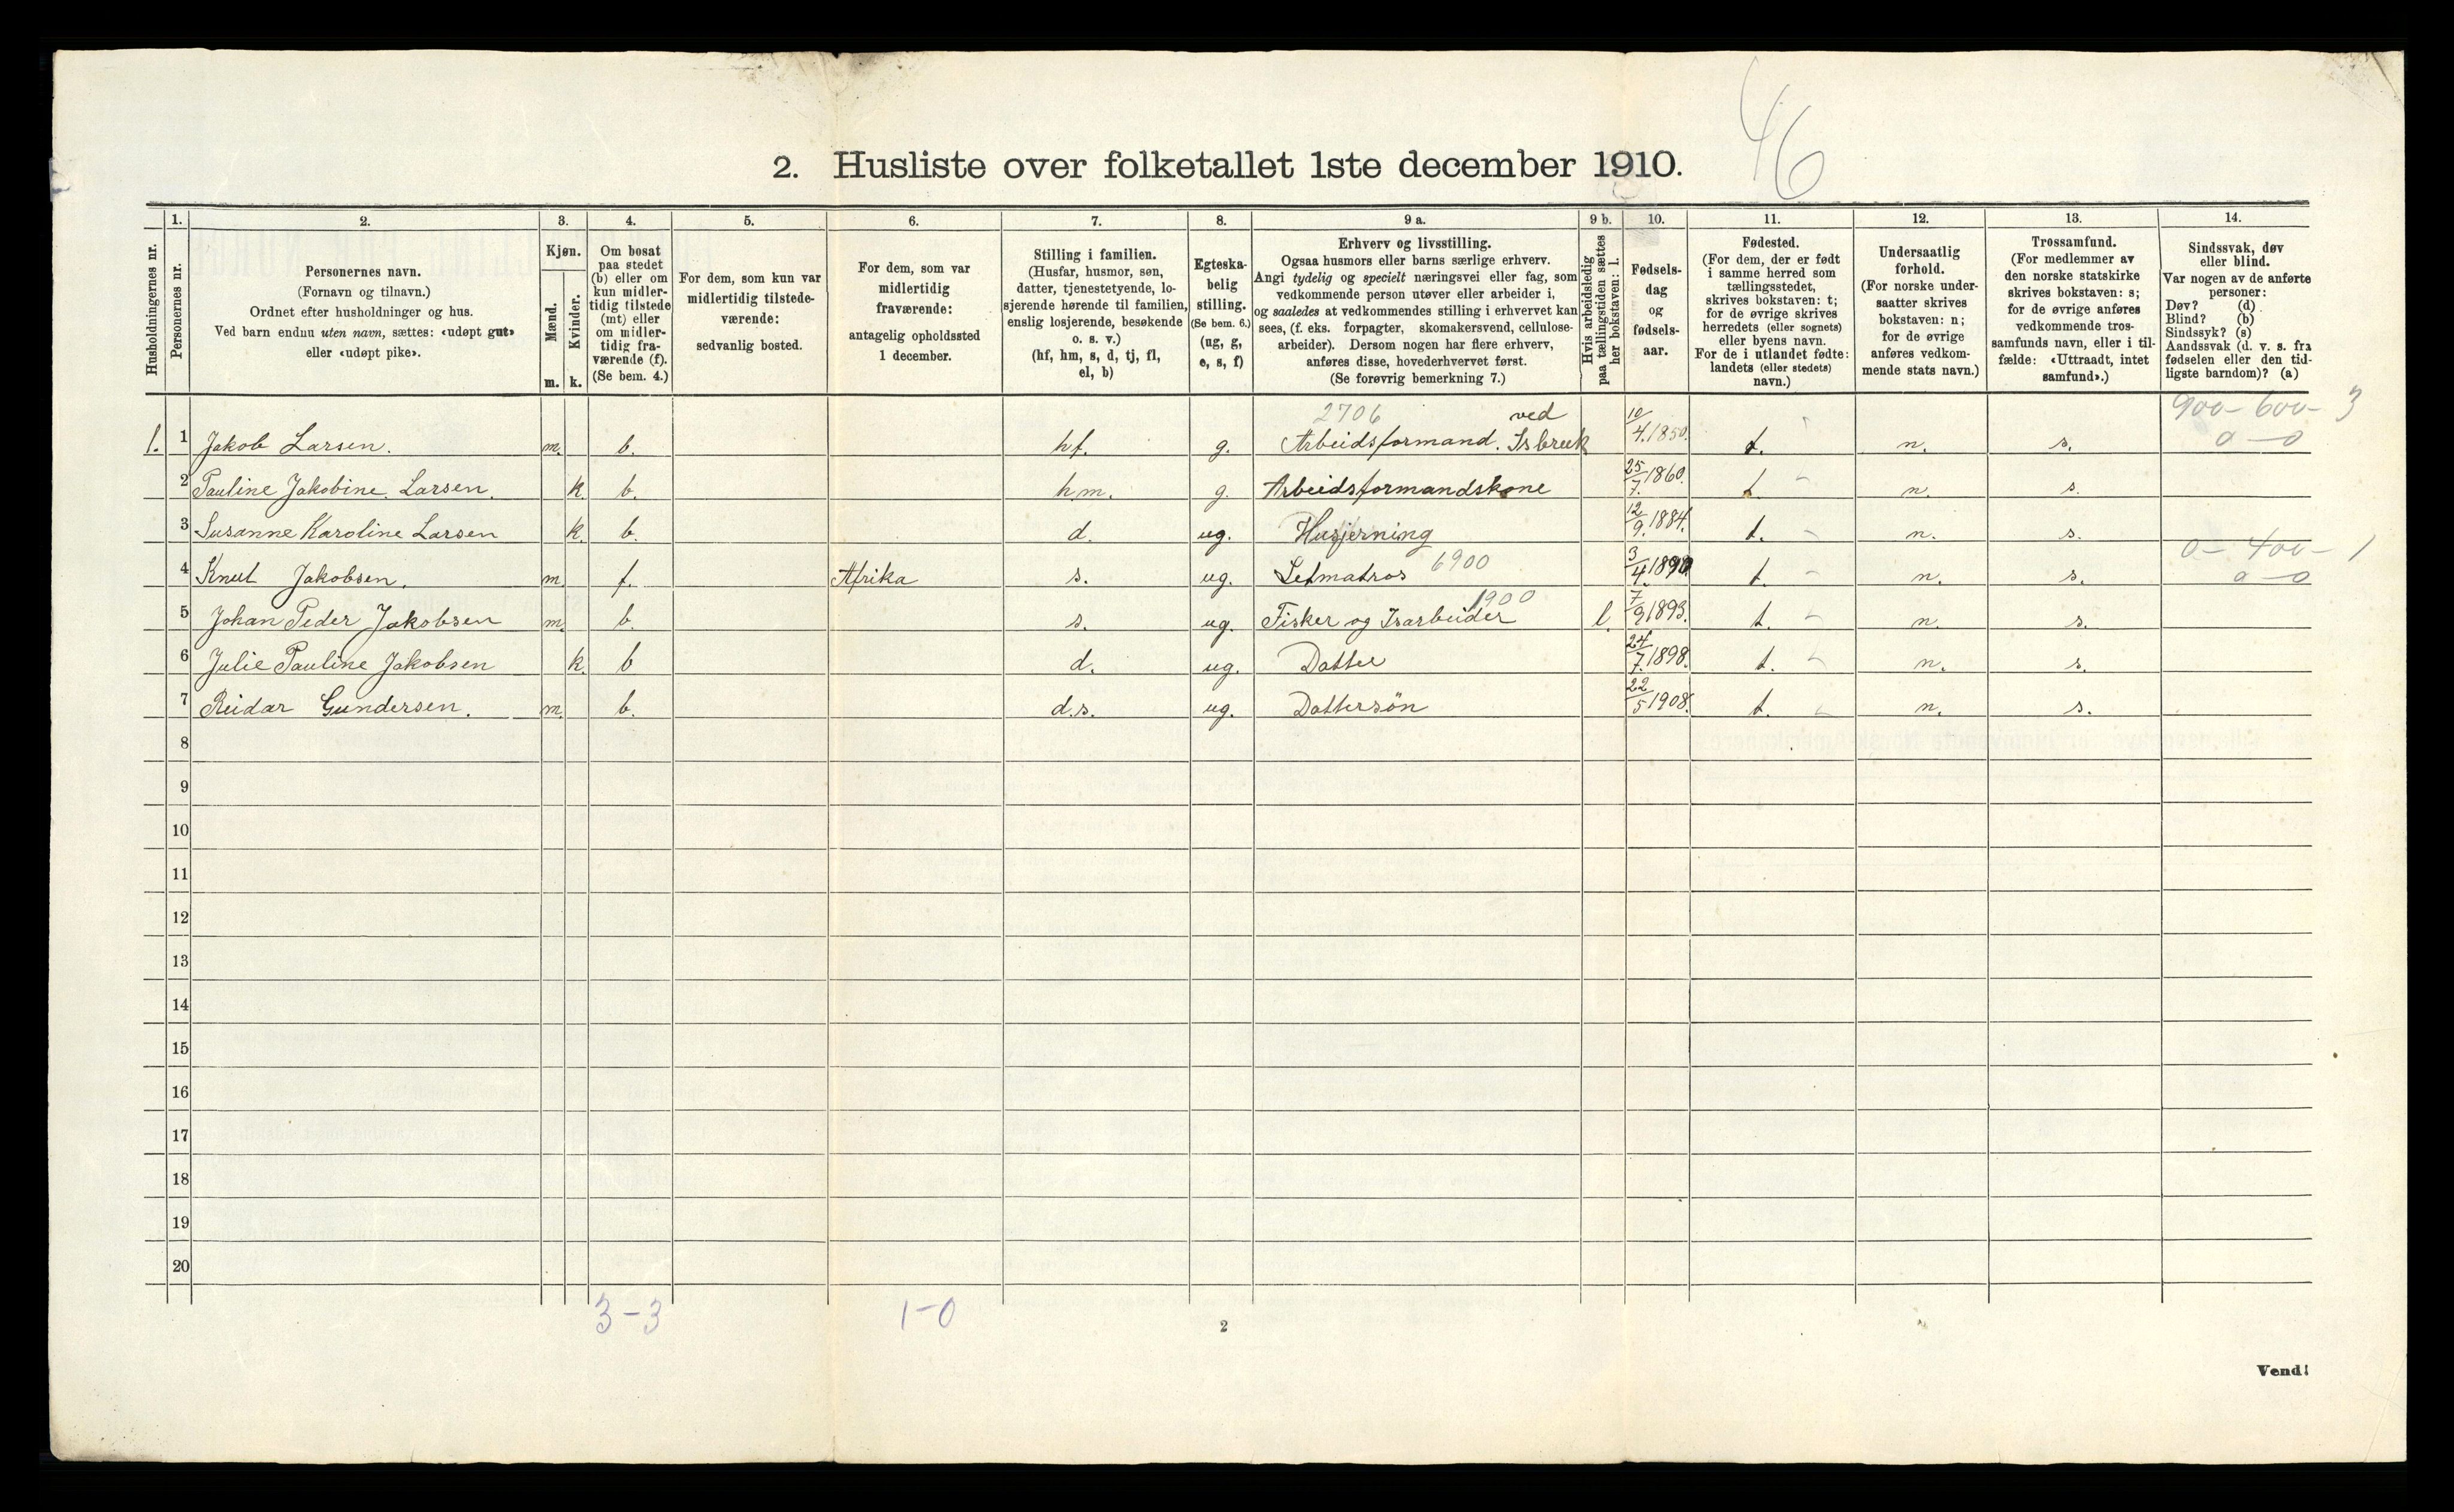 46
2. Husliste over folketallet 1ste december 1910.
Husholdningernes nr.
1.
Personernes nr.
2.
Personernes navn.
(Fornavn og tilnavn.)
Ordnet efter husholdninger og hus.
Ved barn endnu uten navn, sættes: «udøpt gut»
eller «udøpt pike».
3.
Kjøn.
Mænd.
Kvinder.
m. k.
4.
Om bosat
paa stedet
(b) eller om
kun midler-
tidig tilstede
(mt) eller
om midler-
tidig fra-
værende (f).
(Se bem. 4.)
5.
For dem, som kun var
midlertidig tilstede-
værende:
sedvanlig bosted.
6.
For dem, som var
midlertidig
fraværende:
antagelig opholdssted
1 december.
7.
Stilling i familien.
(Husfar, husmor, søn,
datter, tjenestetyende, lo-
sjerende hørende til familien,
enslig losjerende, besøkende
o. s. v.)
(hf, hm, s, d, tj, fl,
el, b)
8.
Egteska-
belig
stilling.
(Se bem. 6.)
(ug, g,
e, s, f)
9 a.
Erhverv og livsstilling.
Ogsaa husmors eller barns særlige erhverv.
Angi tydelig og specielt næringsvei eller fag, som
vedkommende person utøver eller arbeider i,
og saaledes at vedkommendes stilling i erhvervet kan
sees, (f. eks. forpagter, skomakersvend, cellulose-
arbeider). Dersom nogen har flere erhverv,
anføres disse, hovederhvervet først.
(Se forøvrig bemerkning 7.)
9 b.
Hvis arbeidsledig
paa tællingstiden sættes
her bokstaven: l.
10.
Fødsels-
dag
og
fødsels-
aar.
11.
Fødested.
(For dem, der er født
i samme herred som
tællingsstedet,
skrives bokstaven: t;
for de øvrige skrives
herredets (eller sognets)
eller byens navn.
For de i utlandet fødte:
landets (eller stedets)
navn.)
12.
Undersaatlig
forhold.
(For norske under-
saatter skrives
bokstaven: n;
for de øvrige
anføres vedkom-
mende stats navn.)
13.
Trossamfund.
(For medlemmer av
den norske statskirke
skrives bokstaven: s;
for de øvrige anføres
vedkommende tros-
samfunds navn, eller i til-
fælde: «Uttraadt, intet
samfund».)
14.
Sindssvak, døv
eller blind.
Var nogen av de anførte
personer:
Døv? (d)
Blind? (b)
Sindssyk? (s)
Aandssvak (d. v. s. fra
fødselen eller den tid-
ligste barndom)? (a)
2706 ved 900 - 600 - 3
1. 1 Jakob Larsen. m. b. hf. g. Arbeidsformand. Isbruk 10/4.1850. t. n. s. 0 - 0
2 Pauline Jakobine Larsen. k. b. h.m. g. Arbeidsformandskone 25/7.1860. t n. s.
3 Susanne Karoline Larsen k. b. d. ug. Husjerning 12/9.1884. t. n. s.
0 - 400 - 1
4 Knut Jakobsen. m. f. Afrika s. ug. Letmatros 6900 3/4.1890 t. n. s. 0 - 0
1900
5 Johan Peder Jakobsen m. b. s. ug. Fisker og Isarbeider l. 7/9 1893. t. n. s.
6 Julie Pauline Jakobsen k. b d. ug. Datter 24/7.1898. t. n. s.
7 Reidar Gundersen. m. b. d.s. ug. Dattersön 22/5 1908. t. n. s.
8
9
10
11
12
13
14
15
16
17
18
19
20
3 - 3 1 - 0
2
Vend!